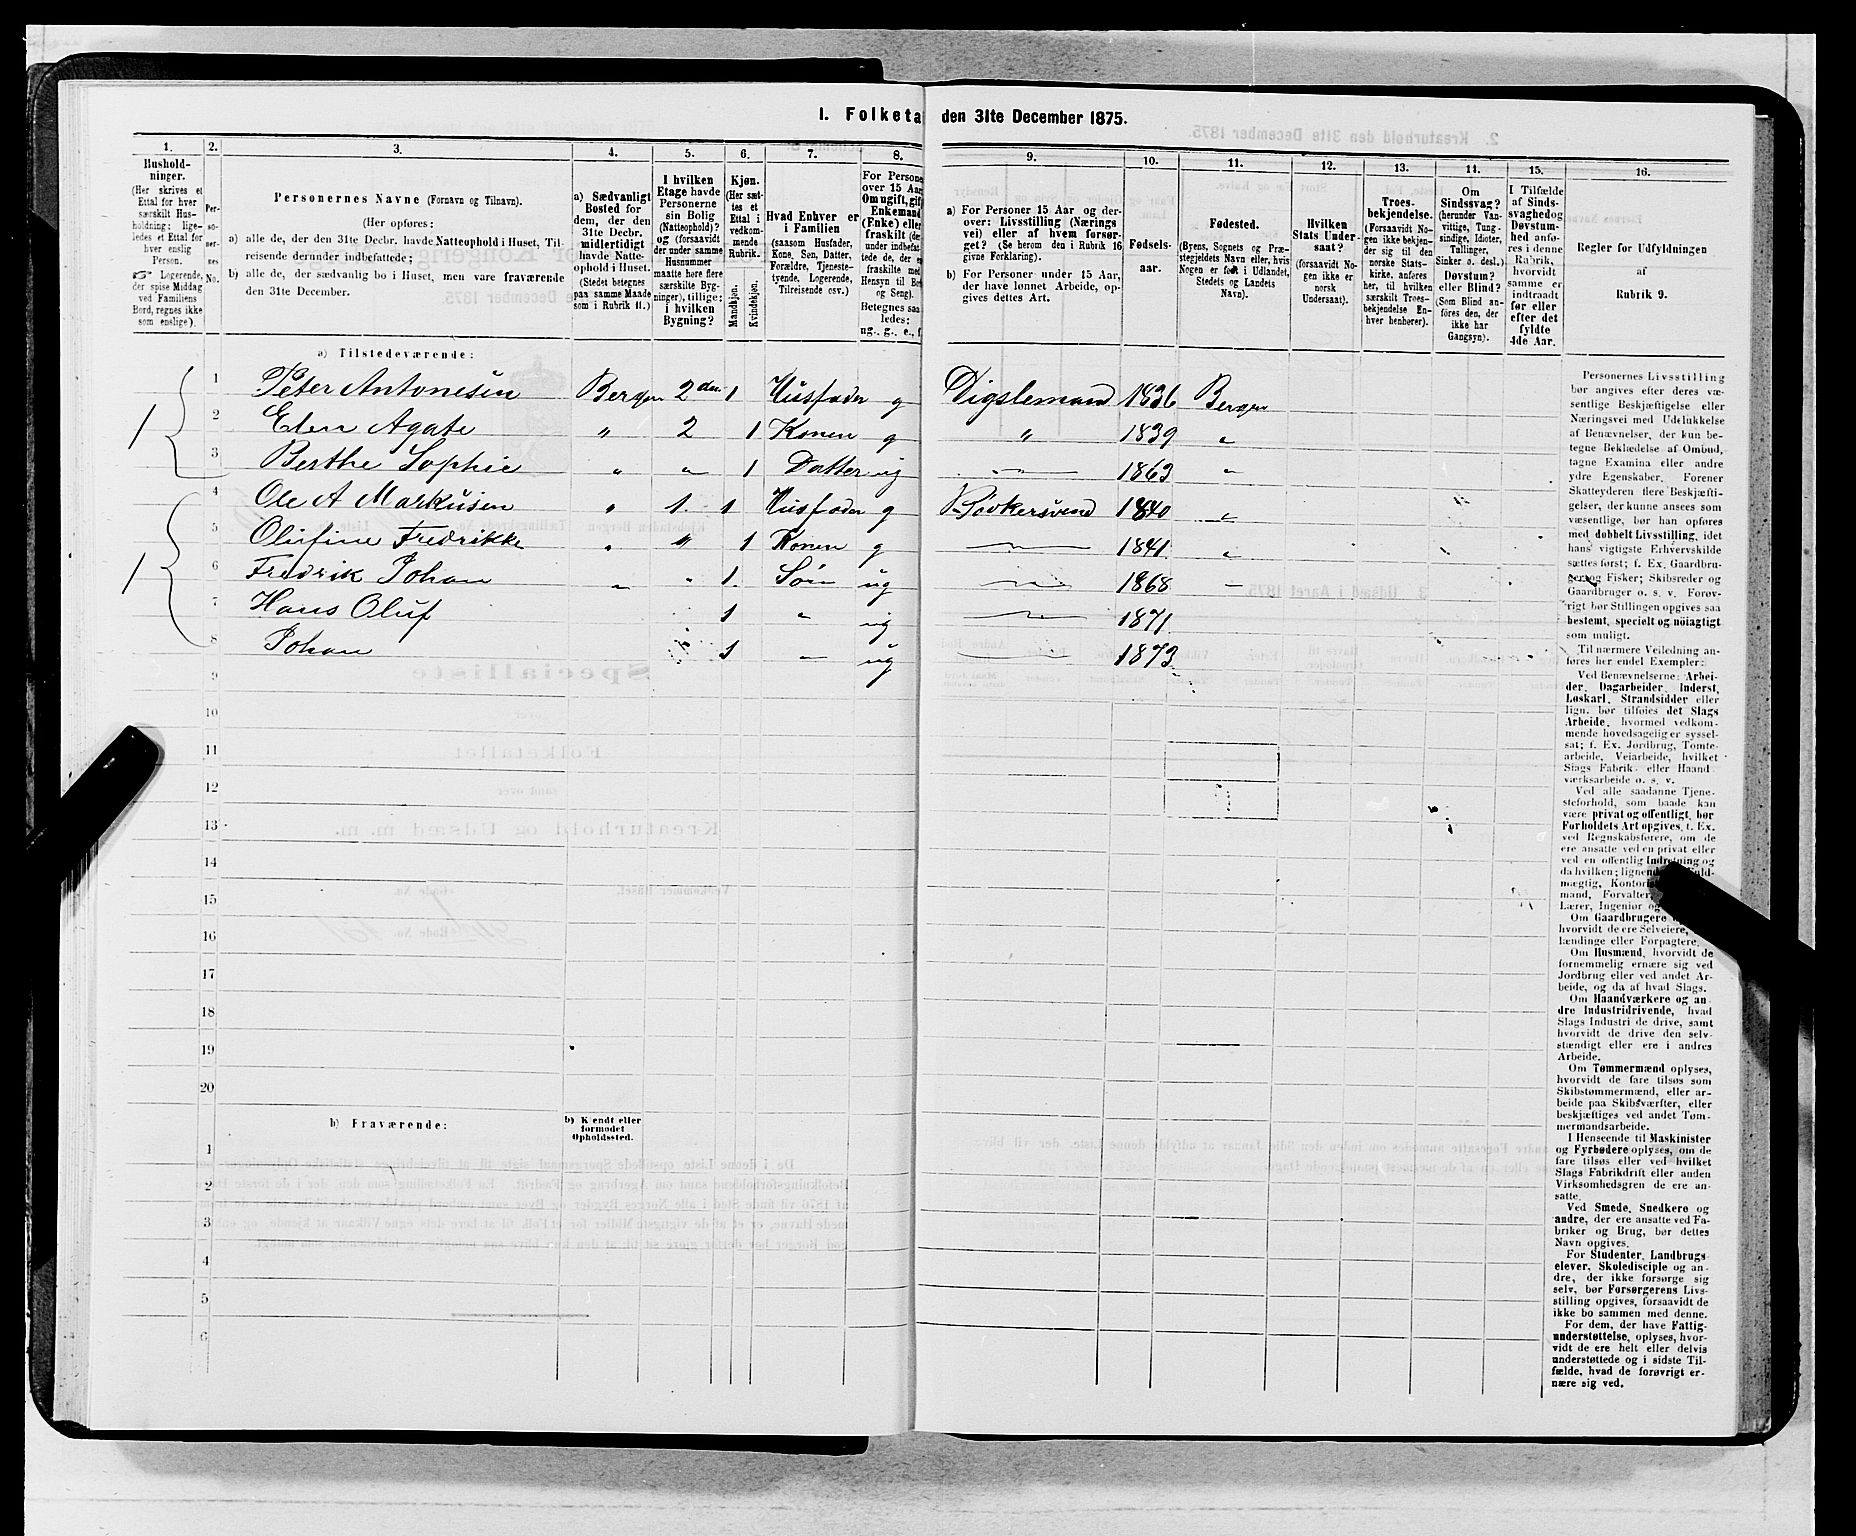 1. Folketa den 31te December 1875.
1. 2. 3. 4. 5. 6. 7. 8. 9. 10. 11. 12. 13. 14. 15. 16.
Hushold-
ninger.
(Her skrives et
Ettal for hver
særskilt Hus-
holdning; lige-
ledes et Ettal for
hver enslig
Person.
☞ Logerende,
der spise Middag
ved Familiens
Bord, regnes ikke
som enslige).
Per-
so-
ner-
nes
No.
Personernes Navne (Fornavn og Tilnavn).
(Her opføres:
a) alle de, der den 31te Decbr. havde Natteophold i Huset, Til-
reisende derunder indbefattede;
b) alle de, der sædvanlig bo i Huset, men vare fraværende
den 31te December.
a) Sædvanligt
Bosted for
dem, der den
31te Decbr.
midlertidigt
havde Natte-
ophold i Huset.
(Stedet betegnes
paa samme Maade
som i Rubrik 11.)
I hvilken
Etage havde
Personerne
sin Bolig
(Natteophold)?
og (forsaavidt
der under samme
Husnummer
maatte høre flere
særskilte Byg-
ninger), tillige:
i hvilken
Bygning?
Kjøn.
(Her sæt-
tes et
Ettal i
vedkom-
mende
Rubrik.
Mandkjøn.
Kvindekjøn.
Hvad Enhver er
i Familien
(saasom Husfader,
Kone, Søn, Datter,
Forældre, Tjeneste-
tyende, Logerende,
Tilreisende osv.)
For Persone
over 15 Aar
Om ugift, gif
Enkemand
(Enke) elle
fraskilt (de
under indbefat-
tede de, der e
fraskilte med
Hensyn til Bo
og Seng).
Betegnes saa
ledes:
ug., g., e., f.
a) For Personer 15 Aar og der-
over: Livsstilling (Nærings
vei) eller af hvem forsør-
get? (Se herom den i Rubrik 16
givne Forklaring).
b) For Personer under 15 Aar,
der have lønnet Arbeide, op-
gives dettes Art.
Fødsels-
aar.
Fødested.
(Byens, Sognets og Præ-
stegjeldets Navn eller, hvis
Nogen er født i Udlandet,
Stedets og Landets
Navn).
Hvilken
Stats Under-
saat?
(forsaavidt No-
gen ikke er
norsk
Undersaat).
Troes-
bekjendelse.
(Forsaavidt No-
gen ikke bekjen-
der sig til den
norske Stats-
kirke, anføres
her, til hvilken
særskilt Troes-
bekjendelse En-
hver henhører).
Om
Sindssvag?
(herunder Van-
vittige, Tung-
sindige, Idioter,
Tullinger,
Sinker o. desl.)
Døvstum?
eller Blind?
(Som Blind an-
føres den, der
ikke har
Gangsyn).
I Tilfælde
af Sinds-
svaghed og
Døvstum-
hed anfø-
res i denne
Rubrik,
hvorvidt
samme er
indtraadt
før eller
efter det
fyldte
4de Aar.
Regler for Udfyldningen
af
Rubrik 9.
a) Tilstedeværende:
1 1 Peter Antonesen Bergen 2den 1 Husfader g 1836 Bergen
2 Elen Agate „ 2 1 Konen g „ 1839 „
3 Berthe Sophie „ „ 1 Datter ug 1863 „
1 4 Ole A Markusen „ 1. 1 Husfader g Bødkersvend 1840 „
5 Olufine Fredrikke „ „ 1 Konen g 1841 „
6 Fredrik Johan „ „ 1. Søn ug 1868 „
7 Hans Oluf 1 „ ug 1871
8 Johan 1 „ ug 1873
9
10
11
12
13
14
15
16
17
18
19
20
b) Fraværende:
b) Kjendt eller
formodet
Opholdssted.
1
2
3
4
5
6
Personernes Livsstilling
bør angives efter deres væ-
sentlige Beskjæftigelse eller
Næringsvei med Udelukkelse
af Benævnelser, der kun be-
tegne Beklædelse af Ombud,
tagne Examina eller andre
ydre Egenskaber. Forener
Skatteyderen flere Beskjæfti-
gelser, der kunne ansees som
væsentlige, bør han opføres
med dobbelt Livsstilling, idet
hans vigtigste Erhvervskilde
sættes først; f. Ex. Gaardbru-
ger og Fisker; Skibsreder og
Gaardbruger o. s. v. Forøv-
rigt bør Stillingen opgives saa
bestemt, specielt og nöiagtigt
som muligt.
Til nærmere Veiledning an-
føres her endel Exempler:
Ved Benævnelserne: Arbei-
der, Dagarbeider, Inderst,
Løskarl, Strandsidder eller
lign. bør tilføies det Slags
Arbeide, hvormed vedkom-
mende hovedsagelig er syssel-
sat; f. Ex. Jordbrug, Tomte-
arbeide, Veiarbeide, hvilket
Slags Fabrik- eller Haand
værksarbeide o. s. v.
Ved alle saadanne Tjene-
steforhold, som baade kan
være privat og offentligt, bør
Forholdets Art opgives, f. Ex.
ved Regnskabsførere, om de
ere ansatte ved en privat eller
ved en offentlig Indretning og
da hvilken; lignend Fuld-
mægtig, Kontori
mand, Forvalter,
Lærer, Ingeniør og
Om Gaardbrugere
hvorvidt de ere Selveiere,
lændinge eller Forpagtere.
Om Husmænd, hvorvidt de
fornemmelig ernære sig ved
Jordbrug eller ved andet Ar-
beide, og da af hvad Slags.
Om Haandværkere og an
dre Industridrivende, hvad
Slags Industri de drive, samt
hvorvidt de drive den selv-
stændigt eller ere i andres
Arbeide.
Om Tømmermænd oplyses,
hvorvidt de fare tilsøs som
Skibstømmermænd, eller ar-
beide paa Skibsværfter, eller
beskjæftiges ved andet Tøm-
mermandsarbeide.
I Henseende til Maskinister
og Fyrbødere oplyses, om de
fare tilsøs eller ved hvilket
Slags Fabrikdrift eller anden
Virksomhedsgren de ere an-
satte.
Ved Smede, Snedkere og
andre, der ere ansatte ved Fa-
briker og Brug, bør dettes
Navn opgives.
For Studenter, Landbrugs
elever, Skoledisciple og an-
dre, der ikke forsørge sig
selv, bør Forsørgerens Livs-
stilling opgives, forsaavidt de
ikke bo sammen med denne.
For dem, der have Fattig-
understøttelse, oplyses, hvor-
vidt de ere helt eller delvis
understøttede og i sidste Til-
fælde, hvad de forøvrigt er-
nære sig ved.